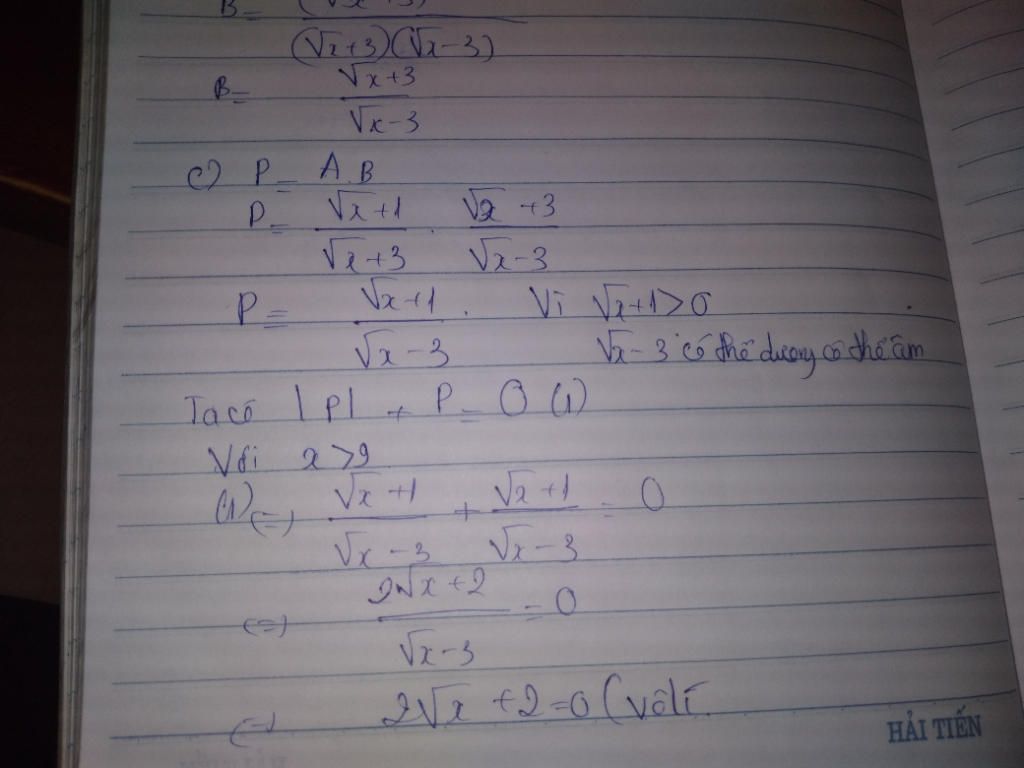 B = (√x+3)
(√x+3)(√x-3)
B = √x+3
√x-3
c) P = A.B
P = √x+1 . √x+3
√x+3 √x-3
P = √x+1 . Vì √x+1>0
√x-3 √x-3 có thể dương có thể âm
Ta có |P| + P = 0 (1)
Với x >9
(1) (=) √x+1 + √x+1 = 0
√x-3 √x-3
(=) 2√x+2 = 0
√x-3
(=) 2√x+2=0 (vôlí
HẢI TIẾN